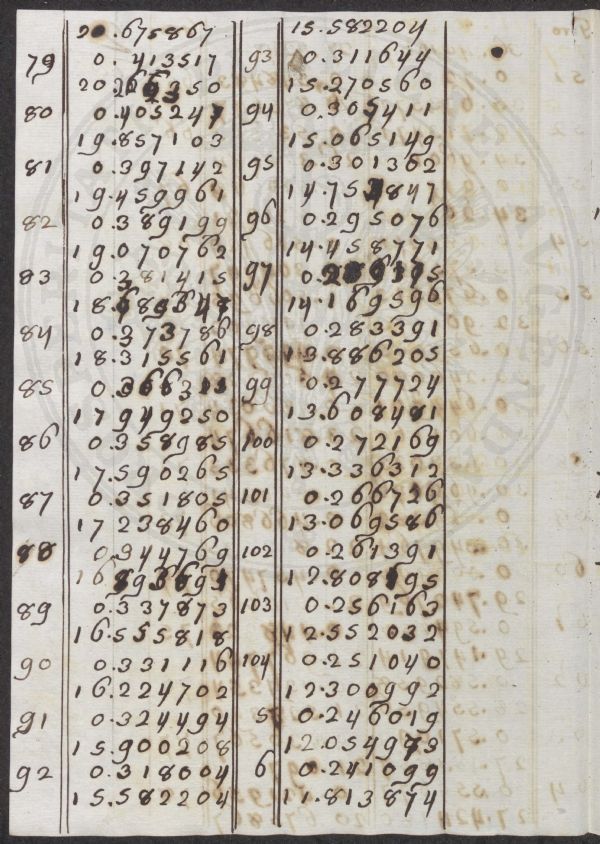 20.675867
79 0.413517
20.262350
80 0.405247
19.857103
81 0.397142
19.459961
82 0.389199
19.070762
83 0.381415
18.689347
84 0.373786
18.315561
85 0.366311
17949250
86 0.358985
17.590265
87 0.351805
17238460
88 0.344769
16893691
89 0.337873
16.555818
90 0.331116
16.224702
91 0.324494
15.900208
92 0.318004
15.582204
15.582204
93 0.311644
15.270560
94 0.305411
15.065149
95 0.301302
14.753847
96 0.295076
14.458771
97 0.289175
14.169596
98 0.283391
13.886205
99 0.277724
13.608481
100 0.272169
13.336312
101 0.266726
13.069586
102 0.261391
12.808195
103 0.256163
12.552032
104 0.251040
12.300992
5 0.246019
12.054973
6 0.241099
11.813874